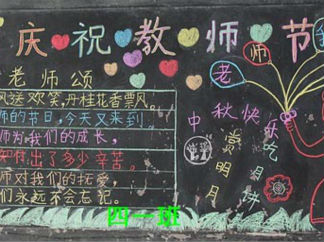 庆祝教师节
老师颂
风送欢笑,丹桂花香飘风。
师的节日,今天又来到。
师为我们的成长,
知付出了多少辛苦。
师对我们的抚爱,
们永远不会忘记。
老师
中秋快乐
赏明月
吃月饼
四一班